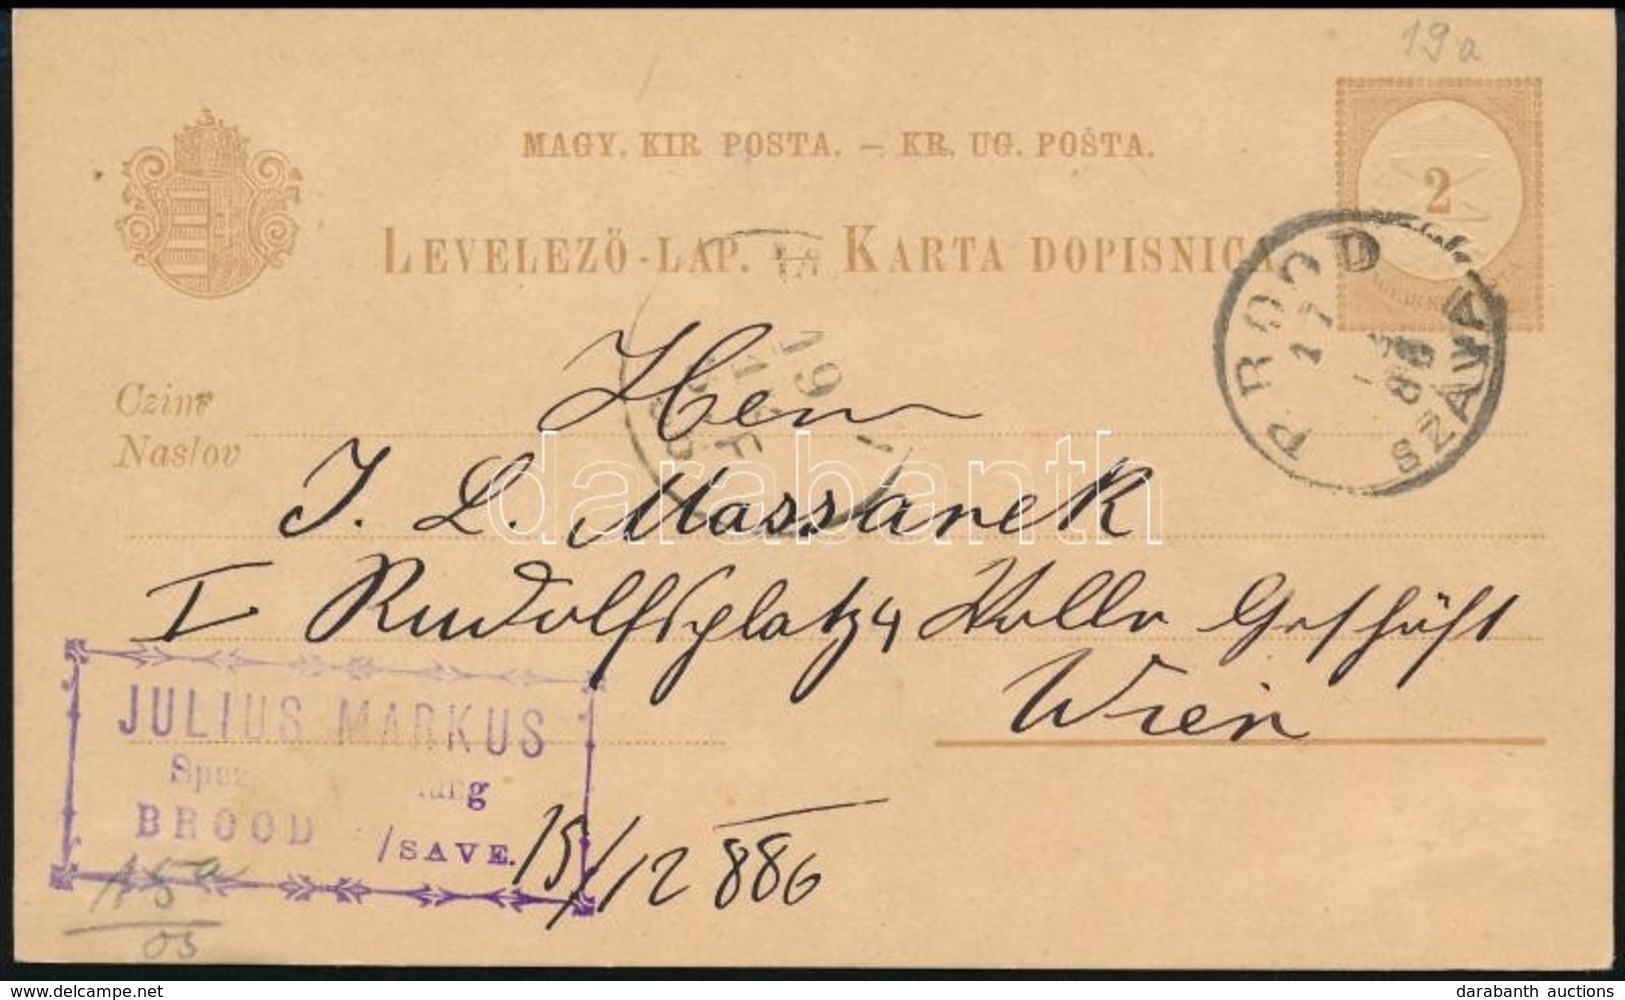 19a
MAGY. KIR. POSTA. – KR. UG. POŠTA.
2
LEVELEZŐ-LAP. – KARTA DOPISNICA.
P BROOD
17
86
SZÁVA
Czim
Naslov
Herrn
J. L. Massarek
I Rudolfsplatz 4 Wolle Geschäft
Wien
JULIUS MARKUS
BROOD /SAVE.
15/12 886
15a
05
darabanth
www.delcampe.net
darabanth auctions